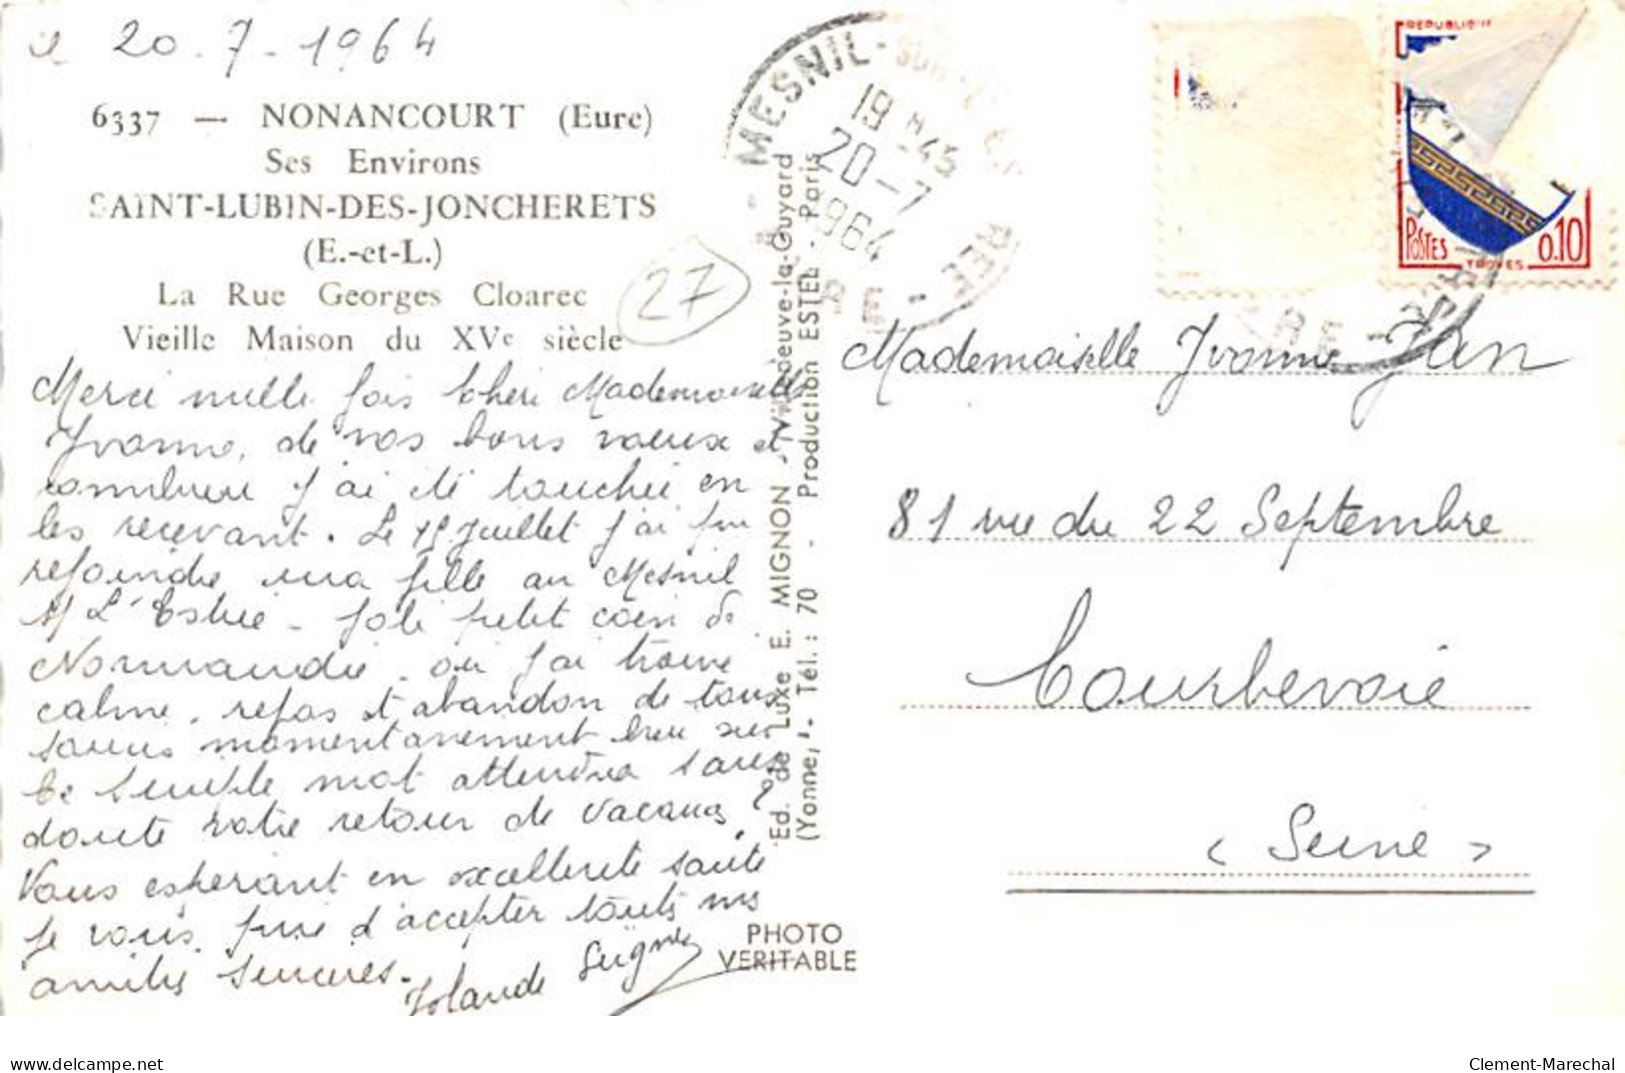 le 20-7-1964
6337 — NONANCOURT (Eure)
Ses Environs
SAINT-LUBIN-DES-JONCHERETS
(E.-et-L.)
La Rue Georges Cloarec
Vieille Maison du XVe siècle
27
Merci mille fois Chère Mademoiselle
Yvonne, de vos bons voeux et
combien j'ai été touchée en
les recevant. Le 15 Juillet j'ai pu
rejoindre ma fille au Mesnil
s/ L'Estrée - Joli petit coin de
Normandie où j'ai trouvé
calme, repos et abandon de tous
soucis momentanement bien sûr
Ce simple mot attendra sans
doute votre retour de vacances ?
Vous espérant en excellente santé
je vous prie d'accepter toutes mes
amitiés sincères.
Yolande
Ed. de Luxe E. MIGNON - Villeneuve-la-Guyard
(Yonne) - Tél. : 70 - Production ESTEL - Paris
PHOTO
VERITABLE
MESNIL-SUR-L'ESTREE
19 H 45
20-7
1964
EURE
REPUBLIQUE
POSTES
TROYES
0.10
Mademoiselle Yvonne Jan
81 rue du 22 Septembre
Courbevoie
(Seine)
delcampe.net
Clement-Marechal